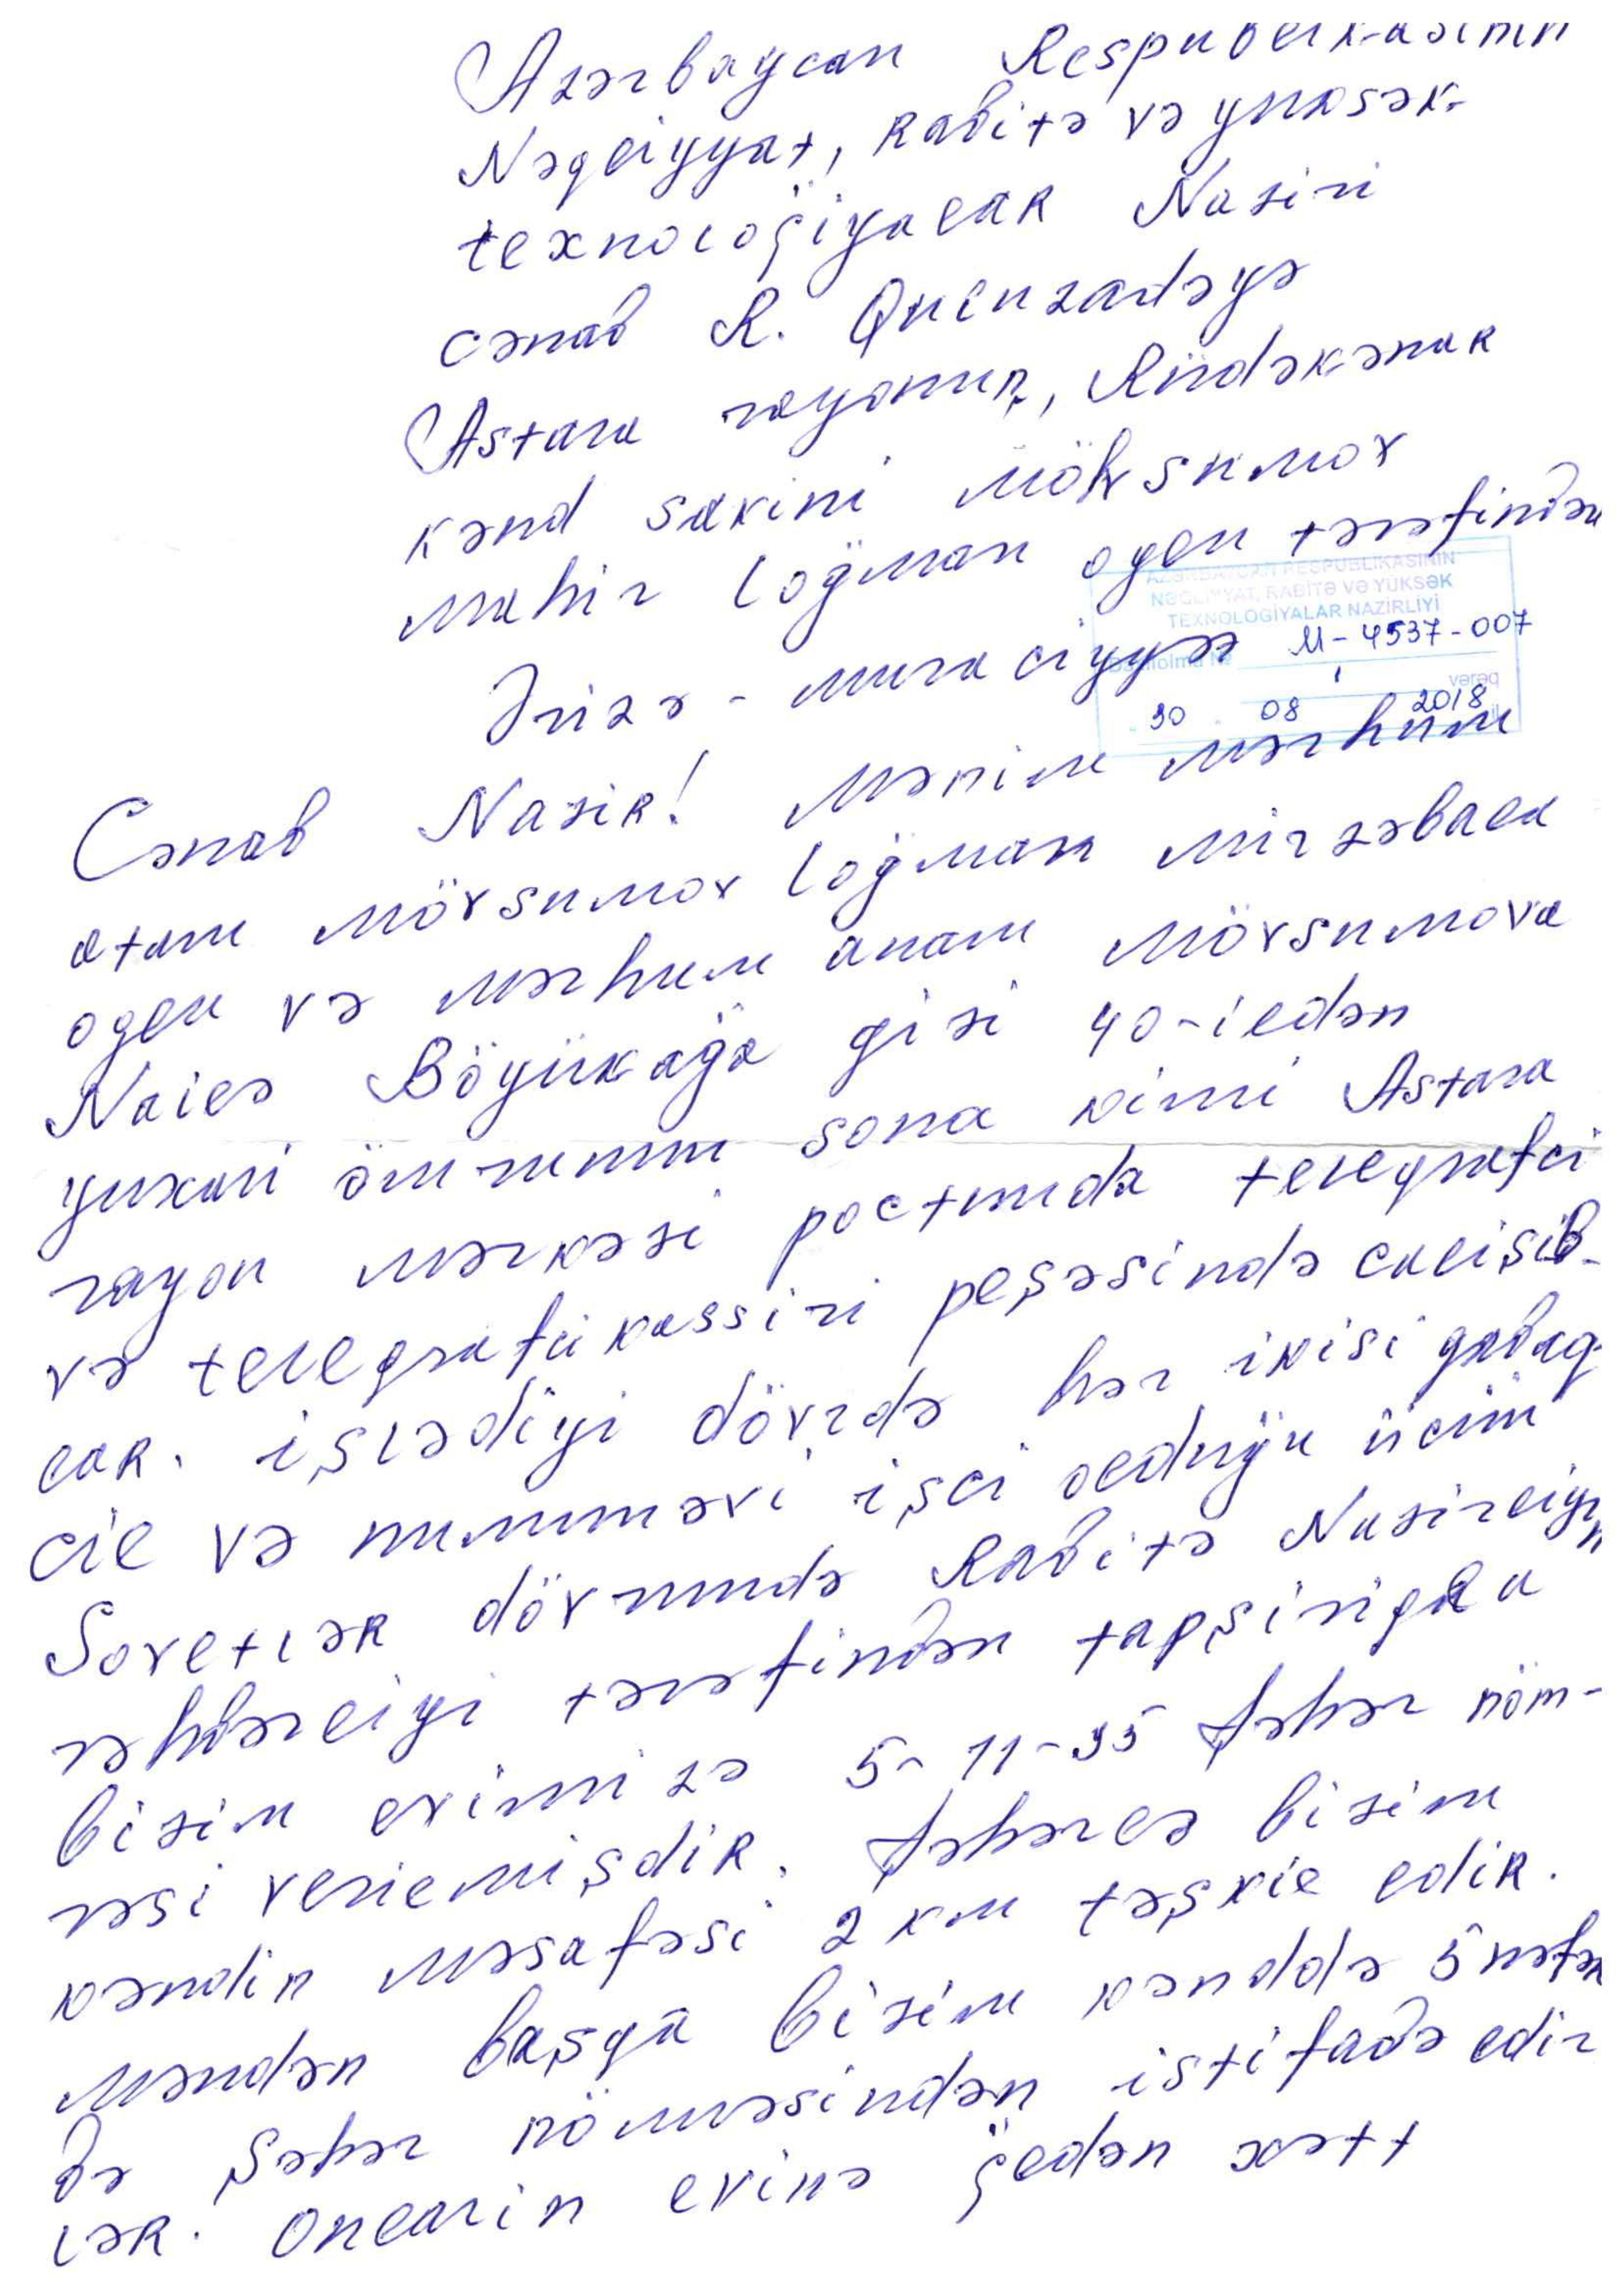 Azərbaycan Respublikasının
Nəqliyyat, Rabitə və yüksək
texnologiyalar Naziri
cənab R. Quluzadəyə
Astara rayonun, Rüdəkənar
kənd sakini Mövsumov
Mahir Loğman oğlu tərəfindən
AZƏRBAYCAN RESPUBLİKASININ
NƏQLİYYAT, RABİTƏ VƏ YÜKSƏK
TEXNOLOGİYALAR NAZİRLİYİ
Ərizə - müraciyyət
Daxilolma № M-4537-007
1 vərəq
30 08 2018
Cənab Nazir! Mənim mərhum
atam Mövsumov Loğman Mirzəbala
oğlu və mərhum anam Mövsumova
Nailə Böyükağa gizi 40-ildən
yuxari ömrunun sona kimi Astara
rayon mərkəzi poctunda teleqrafci
və teleqrafci kassiri peşəsində calişib-
lar. işlədiyi dövrdə hər ikisi gabaq-
cil və nummməvi işci olduğu ücün
Sovetlər dövrundə Rabitə Nazirliyn
rəhbərliyi tərəfindən tapşirigla
bizim evimizə 5-11-35 şəhər nöm-
rəsi verilmişdir. Şəhərlə bizim
kəndin məsafəsi 2 km təşkil edir.
Məndən başga bizim kənddə 5 nəfər
də Şəhər nömrəsindən istifadə edir
lər. Onlarin evinə gedən xətt